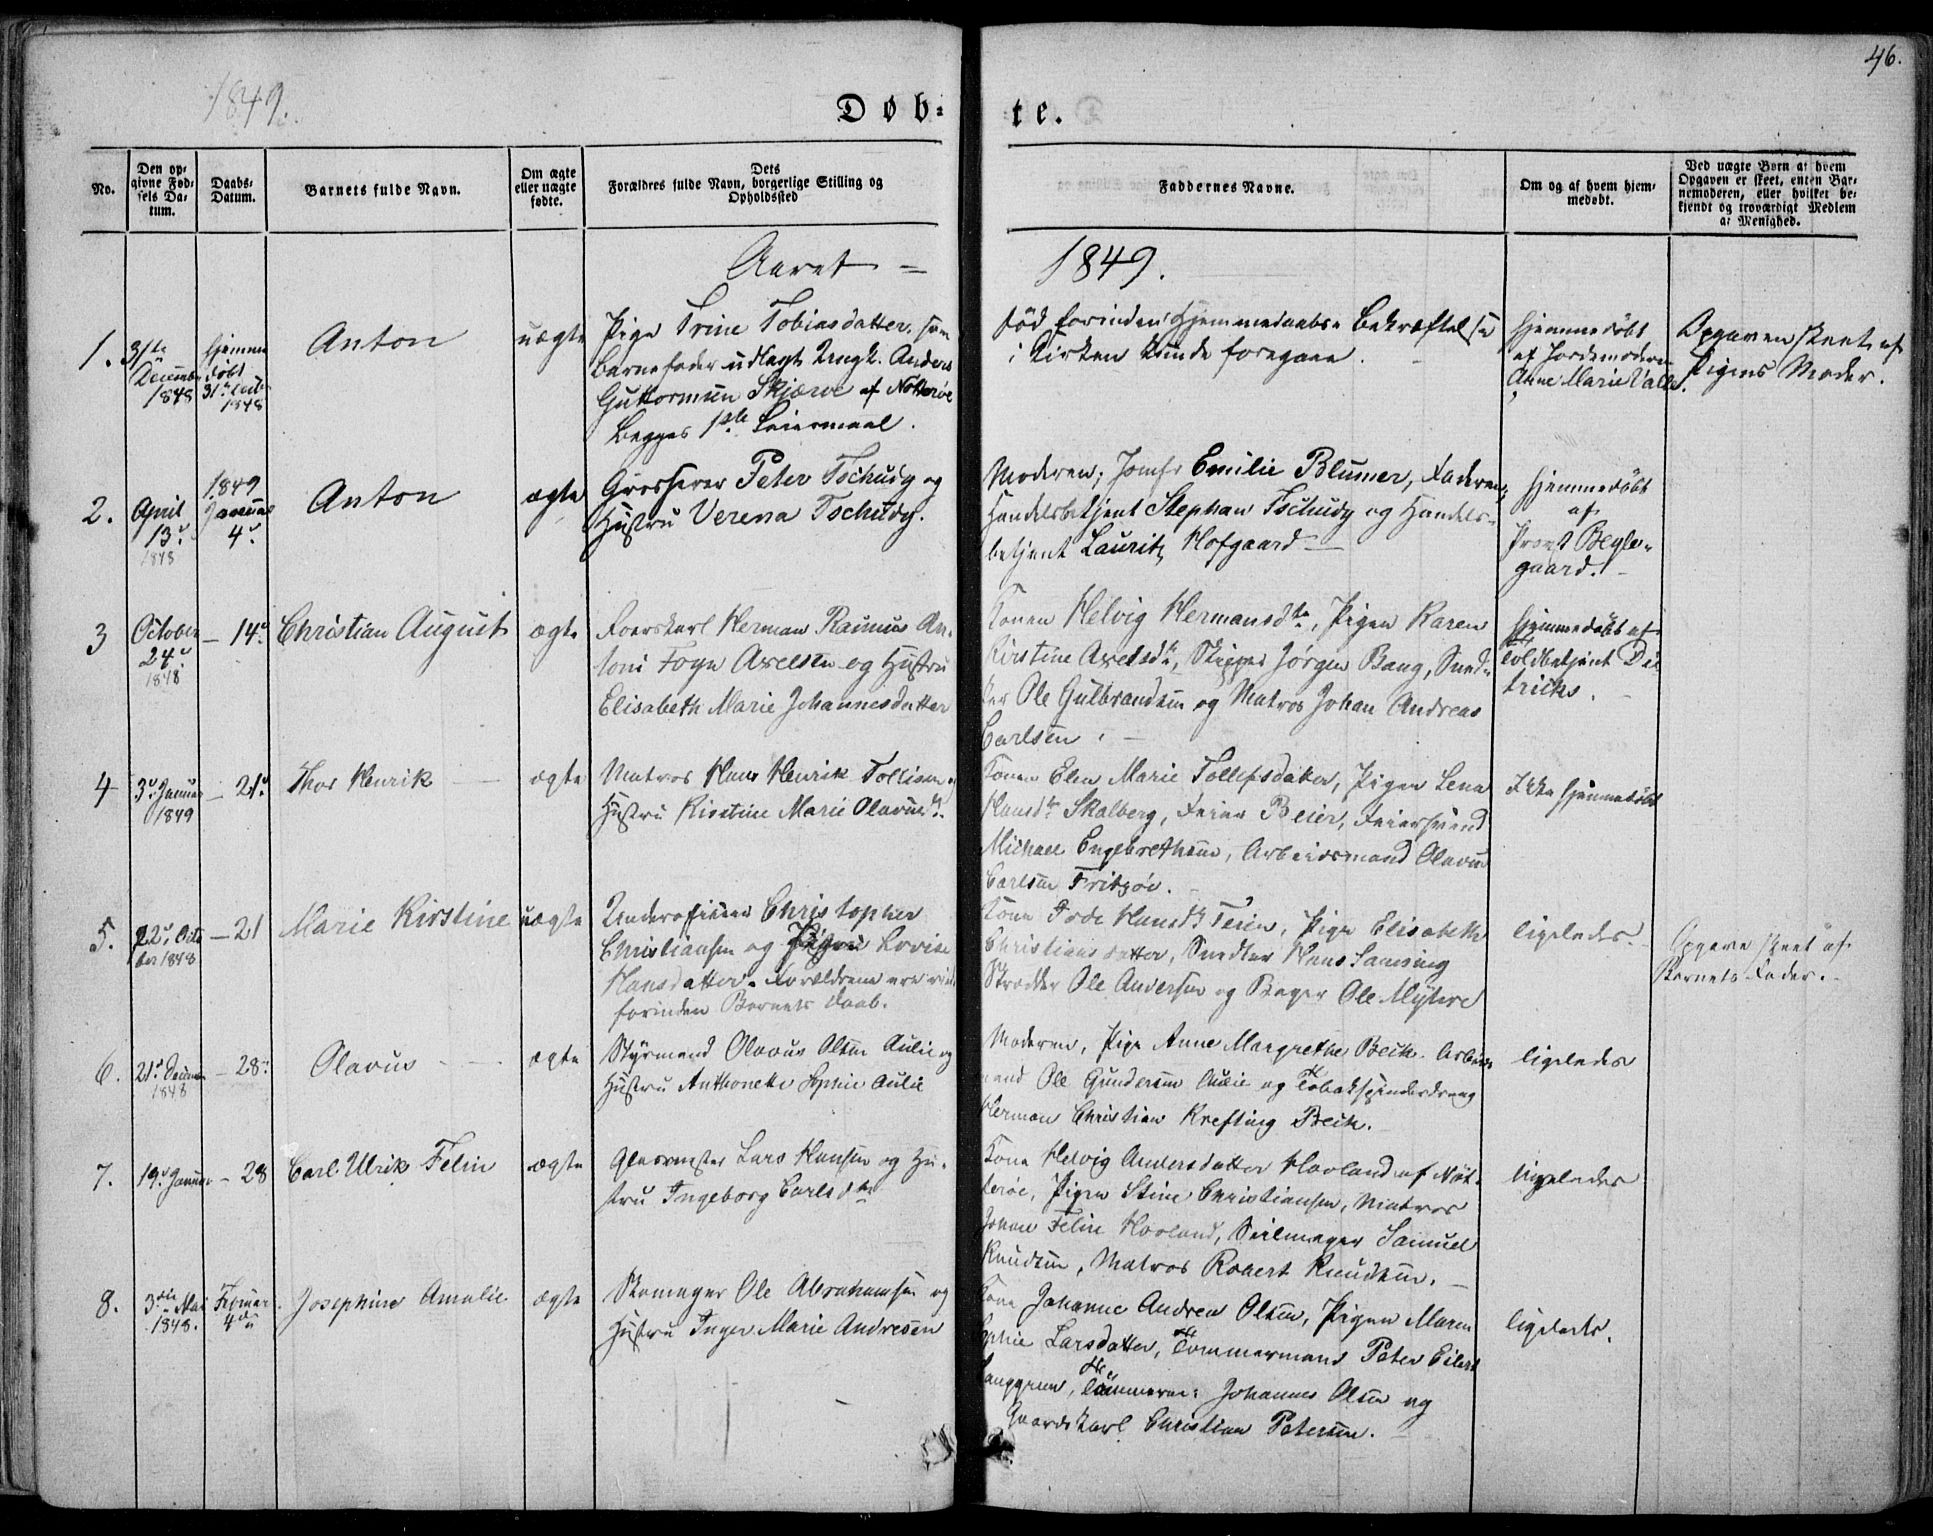 46.
1849.
Døb-
te.
No.
Den op-
givne Fød-
sels Da-
tum.
Daabs-
Datum.
Barnets fulde Navn.
Om ægte
eller uægte
fødte.
Dets
Forældres fulde Navn, borgerlige Stilling og
Opholdssted
Faddernes Navne.
Om og af hvem hjem-
medøbt.
Ved uægte Børn af hvem
Opgaven er skeet, enten Bar-
nemoderen, eller hvilket be-
kjendt og troværdigt Medlem
af Menighed.
Aaret =
1849.
1.
31te
Decembr
1848
Hjemme
døbt
31te Decbr
1848
Anton
uægte
Pige Trine Tobiasdatter, som
Barnefader udlagt Ungk. Anders
Guttormsen Skjærve af Nøtterøe
Begges 1ste Leiermaal.
død forinden Hjemmedaabs Bekræftelse
i Kirken kunde foregaae.
Hjemmedøbt
af Jordemoderen
Anne Marie Valle.
Opgaven skeet af
Pigens Moder.
2.
April
13de
1848
1849
Januar
4de
Anton
ægte
Grosserer Peter Tschudy og
Hustru Verena Tschudy.
Moderen, Jomfr Emilie Blumer, Faderen,
Handelsbetjent Stephan Tschudy og Handels-
betjent Lauritz Hofgaard
Hjemmedøbt
af
Provst Beyle-
gaard.
3
October
24de
1848
- 14de
Christian August
ægte
Herman Rasmus An-
toni Foyn Axelsen og Hustru
Elisabeth Marie Johannesdatter
Konen Helvig Hermansdtr, Pigen Karen
Kirstine Axelsdtr, Skipper Jørgen Bang, Sned-
ker Ole Gulbrandsen og Matros Johan Andreas
Carlsen.
Hjemmedøbt af
Toldbetjent Die-
trichs.
4
3de Januar
1849
- 21de
Thor Henrik
ægte
Matros Hans Henrik Tollisen og
Hustru Kirstine Marie Olavusdtr.
Konen Elen Marie Tollefsdatter, Pigen Lena
Hansdtr Skalberg, Feier Beier, Feiersvend
Michael Engebrethsen, Arbeidsmand Olavus
Carlsen Fritzøe.
Ikke hjemmedøbt
5.
22de Octo
ber 1848
- 21
Marie Kirstine
uægte
Underofficeer Christopher
Christiansen og Pigen Lovise
Hansdatter. Forældrene ere viede
forinden Barnets Daab.
Kone Hansdtr Teien, Pige Elisabeth
Christiansdatter, Snedker Hans Samsing
Skrædder Ole Andersen og Bager Ole Myhre
ligeledes.
Opgave skeet af
Barnets Fader.
6.
21de Decembr
1848
- 28de
Olavus
ægte
Styrmand Olavus Olsen Aulie og
Hustru Anthonette Sophie Aulie
Moderen, Pige Anne Margrethe Bech. Arbeids-
mand Ole Gundersen Aulie og Tobakspinderdreng
Herman Christian Krefting Bech.
ligeledes
7.
19de Januar
- 28
Carl Ulrik Felin
ægte
Glasmester Lars Hansen og Hu-
stru Ingeborg Carlsdtr
Kone Helvig Andersdatter Hovland af Nøt-
terøe, Pigen Stine Christiansen, Matros
Johan Felin Hovland, Seilmager Samuel
Knudsen, Matros Robert Knudsen.
ligeledes
8.
3die Mai
1848.
Februar
4de
Josephine Amalie
ægte
Skomager Ole Abrahamsen og
Hustru Inger Marie Andresen
Kone Johanne Andrea Olsen, Pigen Maren
Sophie Larsdatter, Tømmermand Peter Eilert
Tømmerm: Johannes Olsen og
Gaardskarl Christian Petersen.
ligeleds.